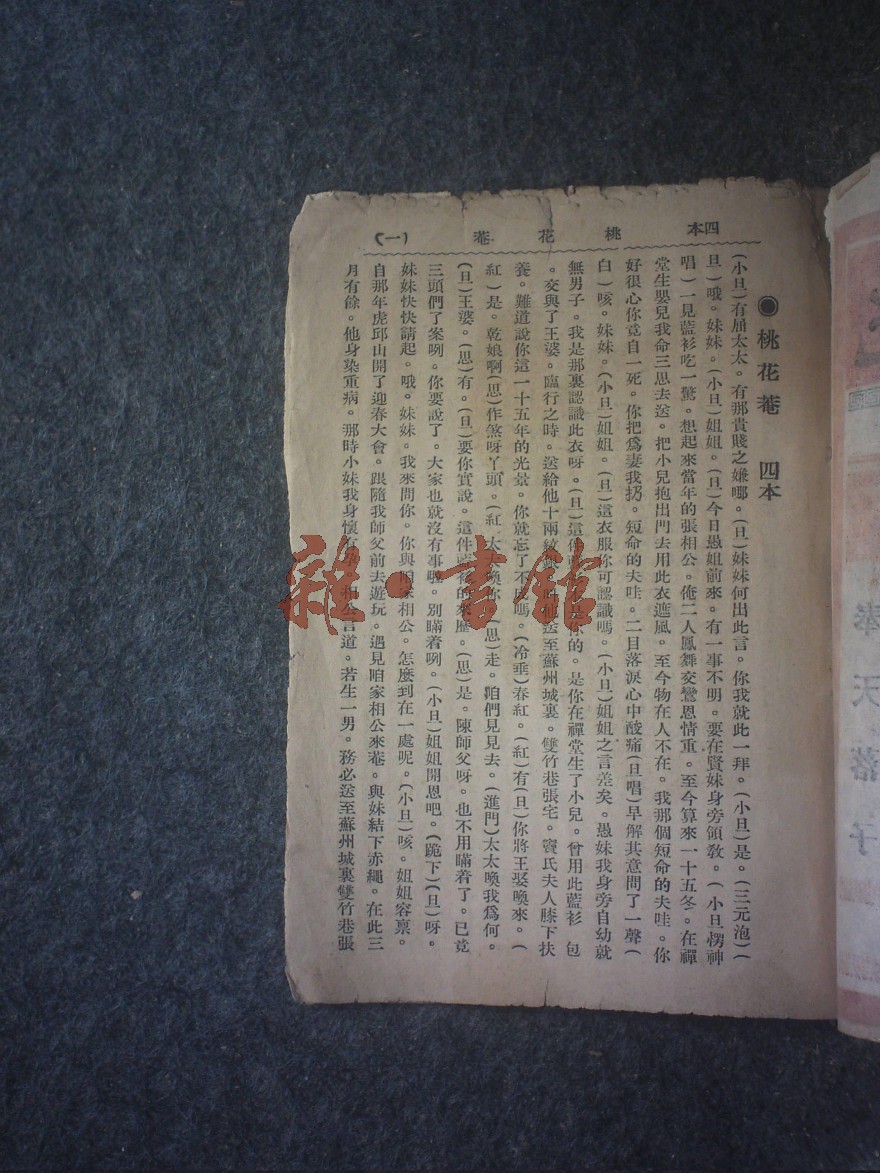 四本　桃花菴　(一)
◉桃花菴　四本
(小旦)有屈太太。有那貴賤之嫌哪。(旦)妹妹何出此言。你我就此一拜。(小旦)是。(三元泡)(
旦)哦。妹妹。(小旦)姐姐。(旦)今日愚姐前來。有一事不明。要在賢妹身旁領教。(小旦愣神
唱)一見藍衫吃一驚。想起來當年的張相公。俺二人鳳舞交鸞恩情重。至今算來一十五冬。在禪
堂生嬰兒我命三思去送。把小兒抱出門去用此衣遮風。至今物在人不在。我那個短命的夫哇。你
好很心你竟自一死。你把爲妻我扔。短命的夫哇。二目落淚心中酸痛(旦唱)早解其意問了一聲(
白)咳。妹妹。(小旦)姐姐。(旦)這衣服你可認識嗎。(小旦)姐姐之言差矣。愚妹我身旁自幼就
無男子。我是那裏認識此衣呀。(旦)這件 是你的。是你在禪堂生了小兒。曾用此藍衫　包
。交與了王婆。臨行之時。送給他十兩紋 他送至蘇州城裏。雙竹巷張宅。竇氏夫人膝下扶
養。難道說你這一十五年的光景。你就忘了不成嗎。(冷垂)春紅。(紅)有(旦)你將王婆喚來。(
紅)是。乾娘啊(思)作煞呀丫頭。(紅)太太喚你。(思)走。咱們見見去。(進門)太太喚我爲何。
(旦)王婆。(思)有。(旦)要你實說。這件 的來歷。(思)是。陳師父呀。也不用瞞着了。已竟
三頭們了案咧。你要說了。大家也就沒有事啦。別瞞着咧。(小旦)姐姐開恩吧。(跪下)(旦)呀。
妹妹快快請起。哦。妹妹。我來問你。你與咱家相公。怎麼到在一處呢。(小旦)咳。姐姐容禀。
自那年虎邱山開了迎春大會。跟隨我師父前去遊玩。遇見咱家相公來菴。與妹結下赤繩。在此三
月有餘。他身染重病。那時小妹我身懷有 相公言道。若生一男。務必送至蘇州城裏雙竹巷張
雜·書館
奉天落子